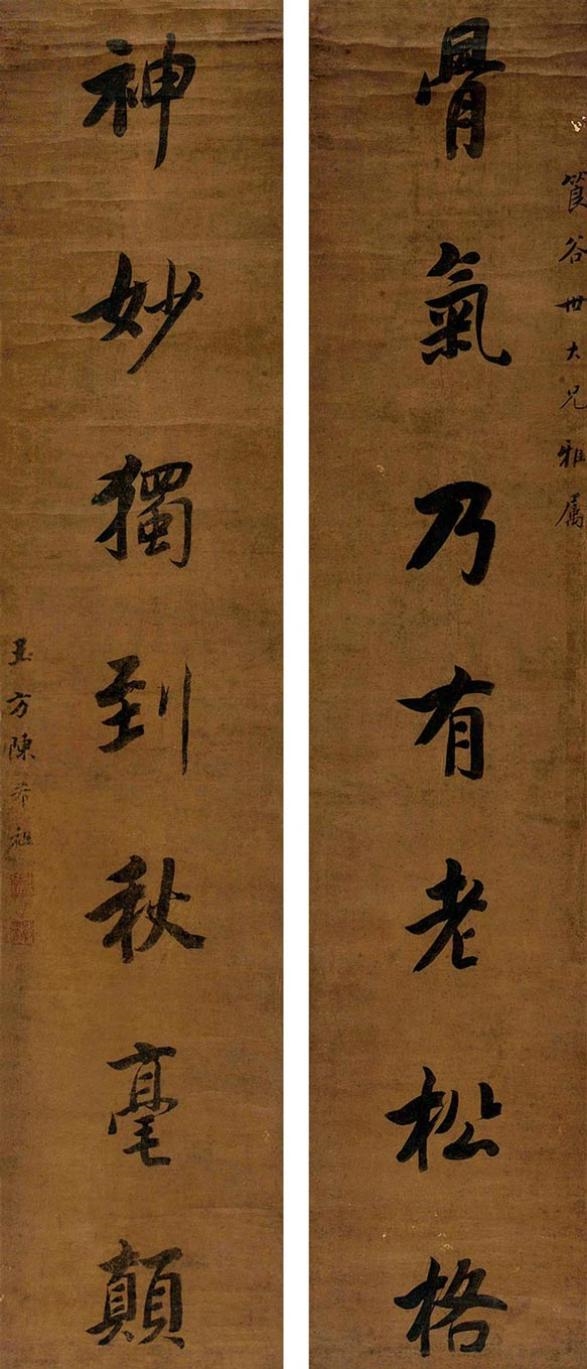 筤谷世大兄雅属
骨氣乃有老松格
神妙獨到秋毫顛
玉方陳希祖